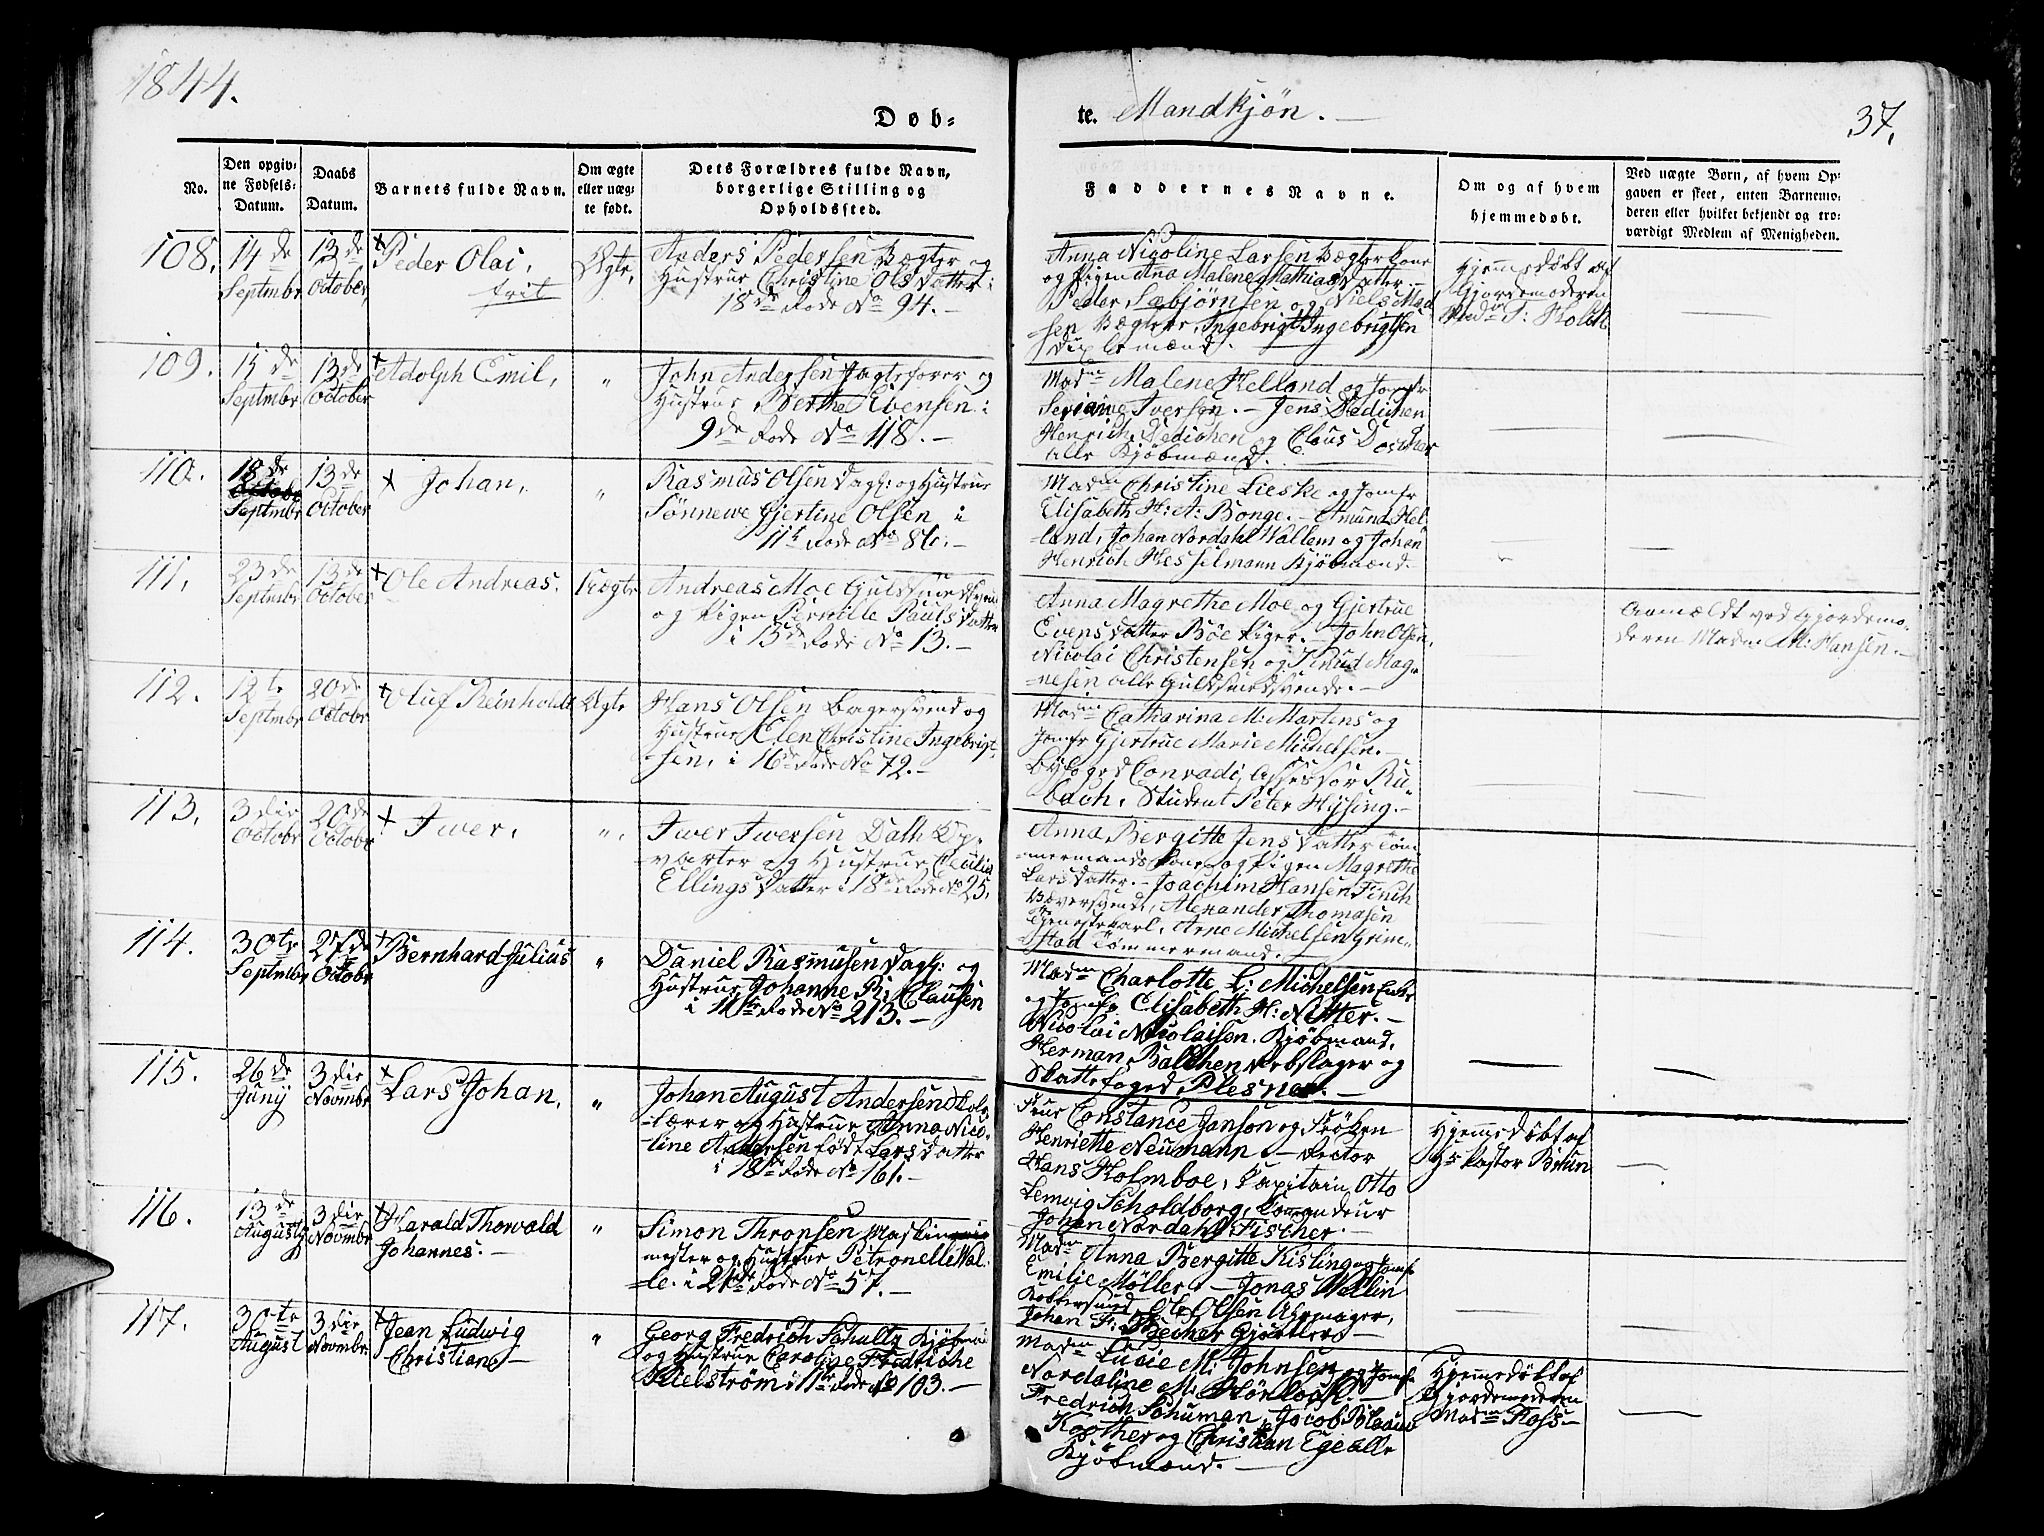 1844.
Døb-
te. Mandkjøn. —
37.
No.
Den opgiv-
ne Fødsels-
Datum.
Daabs
Datum.
Barnets fulde Navn.
Om ægte
eller uæg-
te født.
Dets Forældres fulde Navn,
borgerlige Stilling og
Opholdssted.
Faddernes Navne.
Om og af hvem
hjemmedøbt.
Ved uægte Børn, af hvem Op-
gaven er skeet, enten Barnemo-
deren eller hvilket bekjendt og tro-
værdigt Medlem af Menigheden.
108.
14de
Septmbr
13de
October
Peder Olai,
Ægte,
Anders Pedersen Bægter og
Hustrue Christine Olsdatter i
18de Rode No 94. —
Anna Nicoline Larsen Bægter kone
og Pigen Ana Malene Mathiasdatter —
Peder Sæbjørnsen og Niels Mad
sen Bægtere, Ingebrigt Ingebrigtsen
Hjemmedøbt af
Gjordemoderen
109.
15de
Septmbr
13de
October
Adolph Emil,
"
John Andersen Jagtefører og
Hustrue Berthe Evensen i
9de Rode No 118. —
Madme Malene Helland og Jomfr
Iversen. — Jens Dedichen
Henrich Dedichen og Claus Döscher
alle Kjøbmænd.
110.
18de
Septmbr
13de
October
Johan,
"
Rasmus Olsen Dagl: og Hustrue
Sönnewe Gjertine Olsen i
11te Rode No 86. —
Madme Christine Lieske og Jomfr
Elisabeth H: A: Bonge. — Amund Hel-
land, Johan Nordahl Wallem og Johan
Henrich Hesselmann Kjøbmænd.
111.
23de
Septmbr
13de
October
Ole Andreas.
Uægte
Andreas Moe Guldsmedsvend
og Pigen Pernille Paulsdatter
i 15de Rode No 13. —
Anna Magrethe Moe og Gjertrue
Evensdatter Böe Piger. — John Olsen,
Nicolai Christensen og Knud Mag-
nesen alle Guldsmedsvende. —
Anmeldt ved Gjordemo-
deren Madm M: Hansen. —
112.
12te
Septmbr
20de
Octobr
Oluf Reinholdt
Ægte
Hans Olsen Bagersvend og
Hustrue Elen Christine Ingebrigt-
sen, i 16de Rode No 72. —
Madme Catharina M: Martens og
Jomfr Gjertrue Marie Michelsen. —
Byfoged Conradi, Assessor Ru-
bach, Student Peter Hysing. —
113.
3die
Octobr
20de
Octobr
Iwer,
"
Iwer Iwersen Dath Op-
varter og Hustrue Cecilia
Ellingsdatter i 18de Rode No 25.
Anna Bergitte Jensdatter Töm-
mermandskone og Pigen Magrethe
Larsdatter. — Joachim Hansen Finch
Alexander Thomasen
Tjenestekarl, Arne Michelsen Grim-
stad Tømmermand. —
114.
30te
Septmbr
27de
Octobr
Bernhard Julius
"
Daniel Rasmusen Dagl: og
Hustrue Johanne B: Clausen
i 11te Rode No 213. —
Madme Charlotte L: Michelsen Enke
og Jomfr Elisabeth H: Nitter. —
Nicolai Nicolaisen. Kjøbmand,
Herman Balchen Rebslager og
Skattefoged Plesner. —
115.
26de
Junij
3die
Novmbr
Lars Johan,
"
Johan August Andersen Skole-
lærer og Hustrue Anna Nico-
line Andersen født Larsdatter
i 18de Rode No 161. —
Frue Constance Janson og Frøken
Henriette Neumann — Rector
Hans Holmboe, Kapitain Otto
Lemvig Scholdborg, Comandeur
Johan Nordahl Fischer. —
Hjemmedøbt af
Hr Pastor Bruun
116.
13de
Augusty
3die
Novmbr
Harald Thorvald
Johannes. —
"
Simon Thronsen Maskin
mester og Hustrue Petronelle Wal-
le. i 21de Rode No 57. —
Madme Anna Bergitte Kisling og Jomfr
Emilie Møller — Jonas Wallin
Kobbersmed, Ole Olsen Uhrmager,
Johan F: Becher Gjørtler —
117.
30te
August
3die
Novmbr
Jean Ludwig
Christian, —
"
Georg Fredrich Schultz Kjøbm:
og Hustrue Caroline Fredriche
Kielström i 11te Rode No 103. —
Madme Lucie M: Johnsen og Jomfr
Nordaline M:
Fredrich Schuman, Jacob
og Christian Ege alle
Kjøbmænd. —
Hjemmedøbt af
Gjordemoderen
Madme Foss —